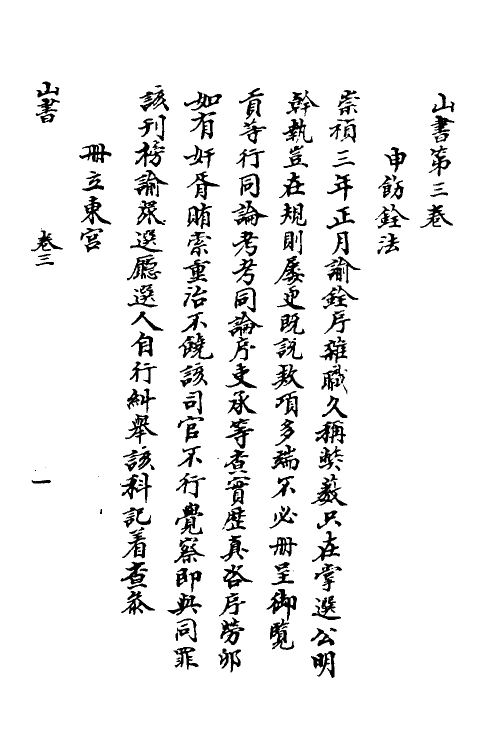 山書第三卷
申飭銓法
崇禎三年正月諭銓序雜職久稱獘薮只在掌選公明
幹執豈在規則屡更既説款項多端不必册呈御覽
貢等行同論考考同論序吏承等查實歷真咨序勞卯
如有奸胥賄索重治不饒該司官不行覺察即與同罪
該刊榜諭張選廳選人自行糾舉該科記着查叅
冊立東宮
山書
卷三
一